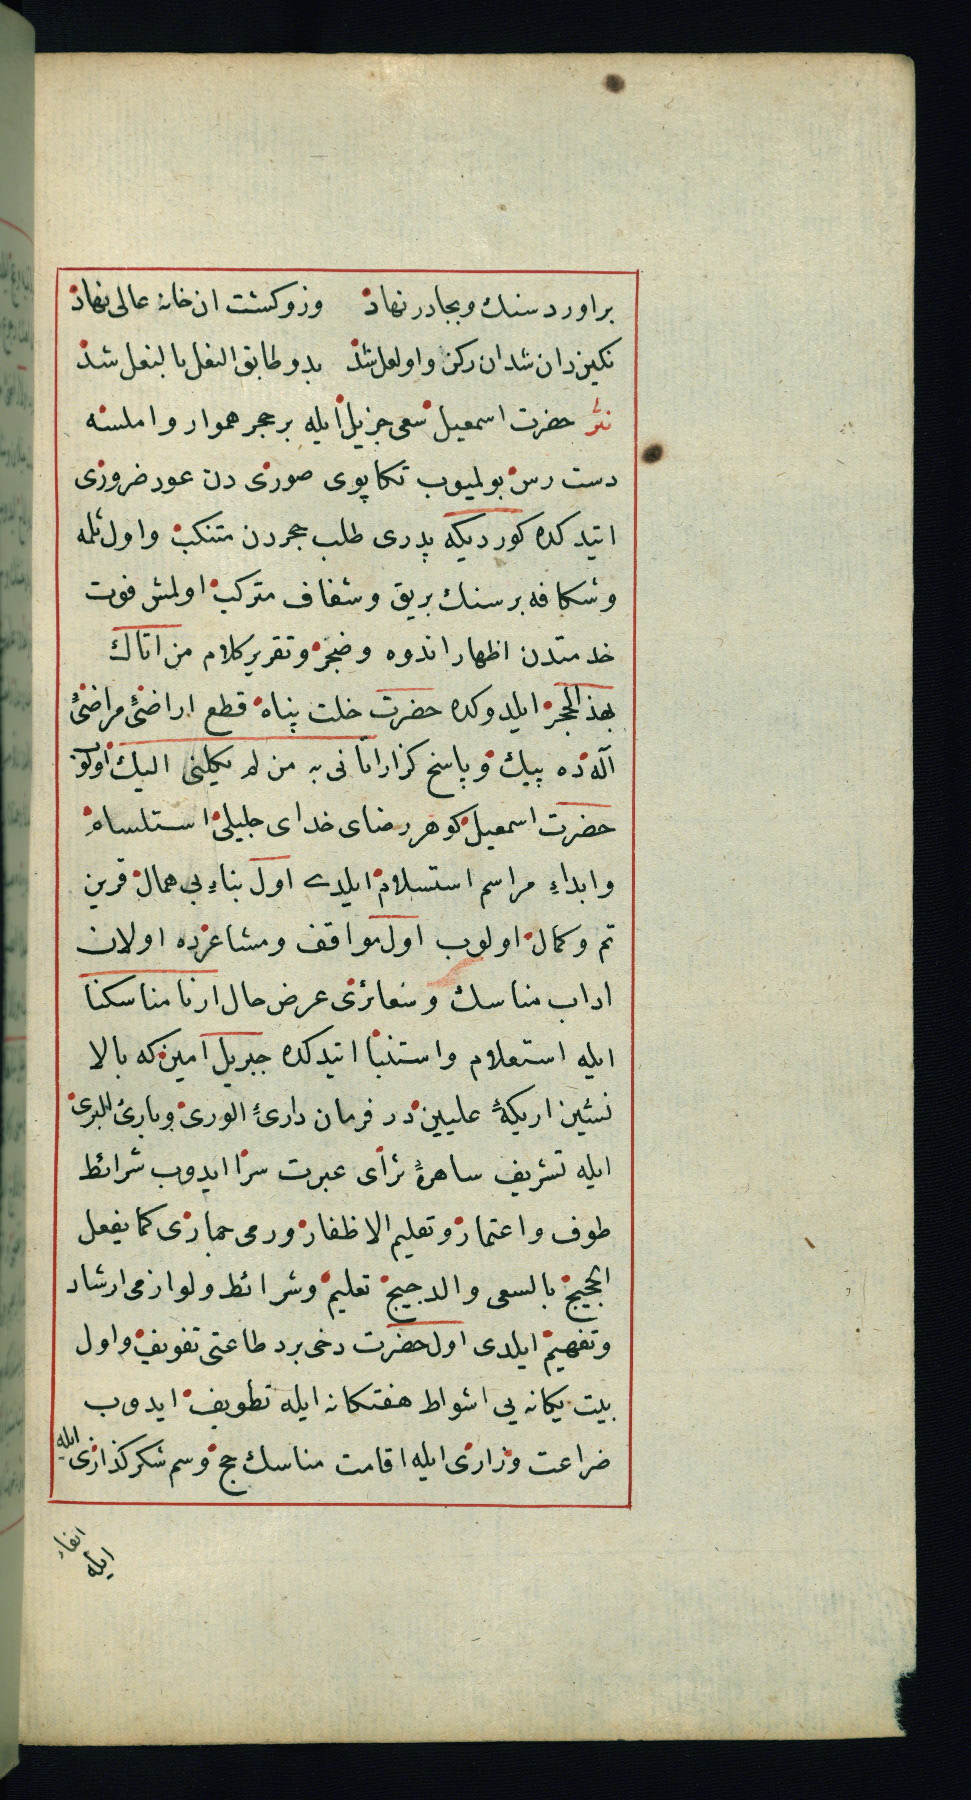 براورد سنك وبجادر نهاد وزوكشت ان خانۀ عالی نهاد
نكين دان شد ان ركن واولعل شد بدو طابق النعل بالنعل شد
نثر حضرت اسمعیل سعی جزیل ایله بر حجر هموار واملسنه
دست رس بولمیوب تكاپوی صوری دن عود ضروری
ایتدكده كوردیكه پدری طلب حجردن متنكب واول ثلمه
وشكافه بر سنك بریق وشفاف متركب اولمش فوت
خدمتدن اظهار اندوه وضجر وتقریر كلام من اتاك
بهذ الحجر ایلدوكده حضرت خلت پناه قطع اراضئ مراضئ
آله ده پیك وپاسخ كزار اتانی به من لم یكلنی الیك اولوب
حضرت اسمعیل كوهر رضای خدای جلیلی استلسام
وابداء مراسم استسلام ایلدی اول بناء بی همال قرین
تم وكمال اولوب اول مواقف ومشاعرده اولان
اداب مناسك وشعائری عرض حال ارنا مناسكنا
ایله استعلام واستنبا ایتدكده جبریل امین كه بالا
نشین اریكۀ علیین در فرمان دارئ الوری وبارئ البری
ایله تشریف ساهرۀ ثرای عبرت سرا ایدوب شرائط
طوف واعتمار وتعلیم الاظفار ورمی جماری كما یفعل
الحجیج بالسعی والدجیج تعلیم وشرائط ولوازمی ارشاد
وتفهیم ایلدی اول حضرت دخی برد طاعتی تفویف واول
بیت یكانه یی اشواط هفتكانه ایله تطویف ایدوب
ضراعت وزاری ایله اقامت مناسك حج وسم شكر كذاری ایله
ایفاء
ایله